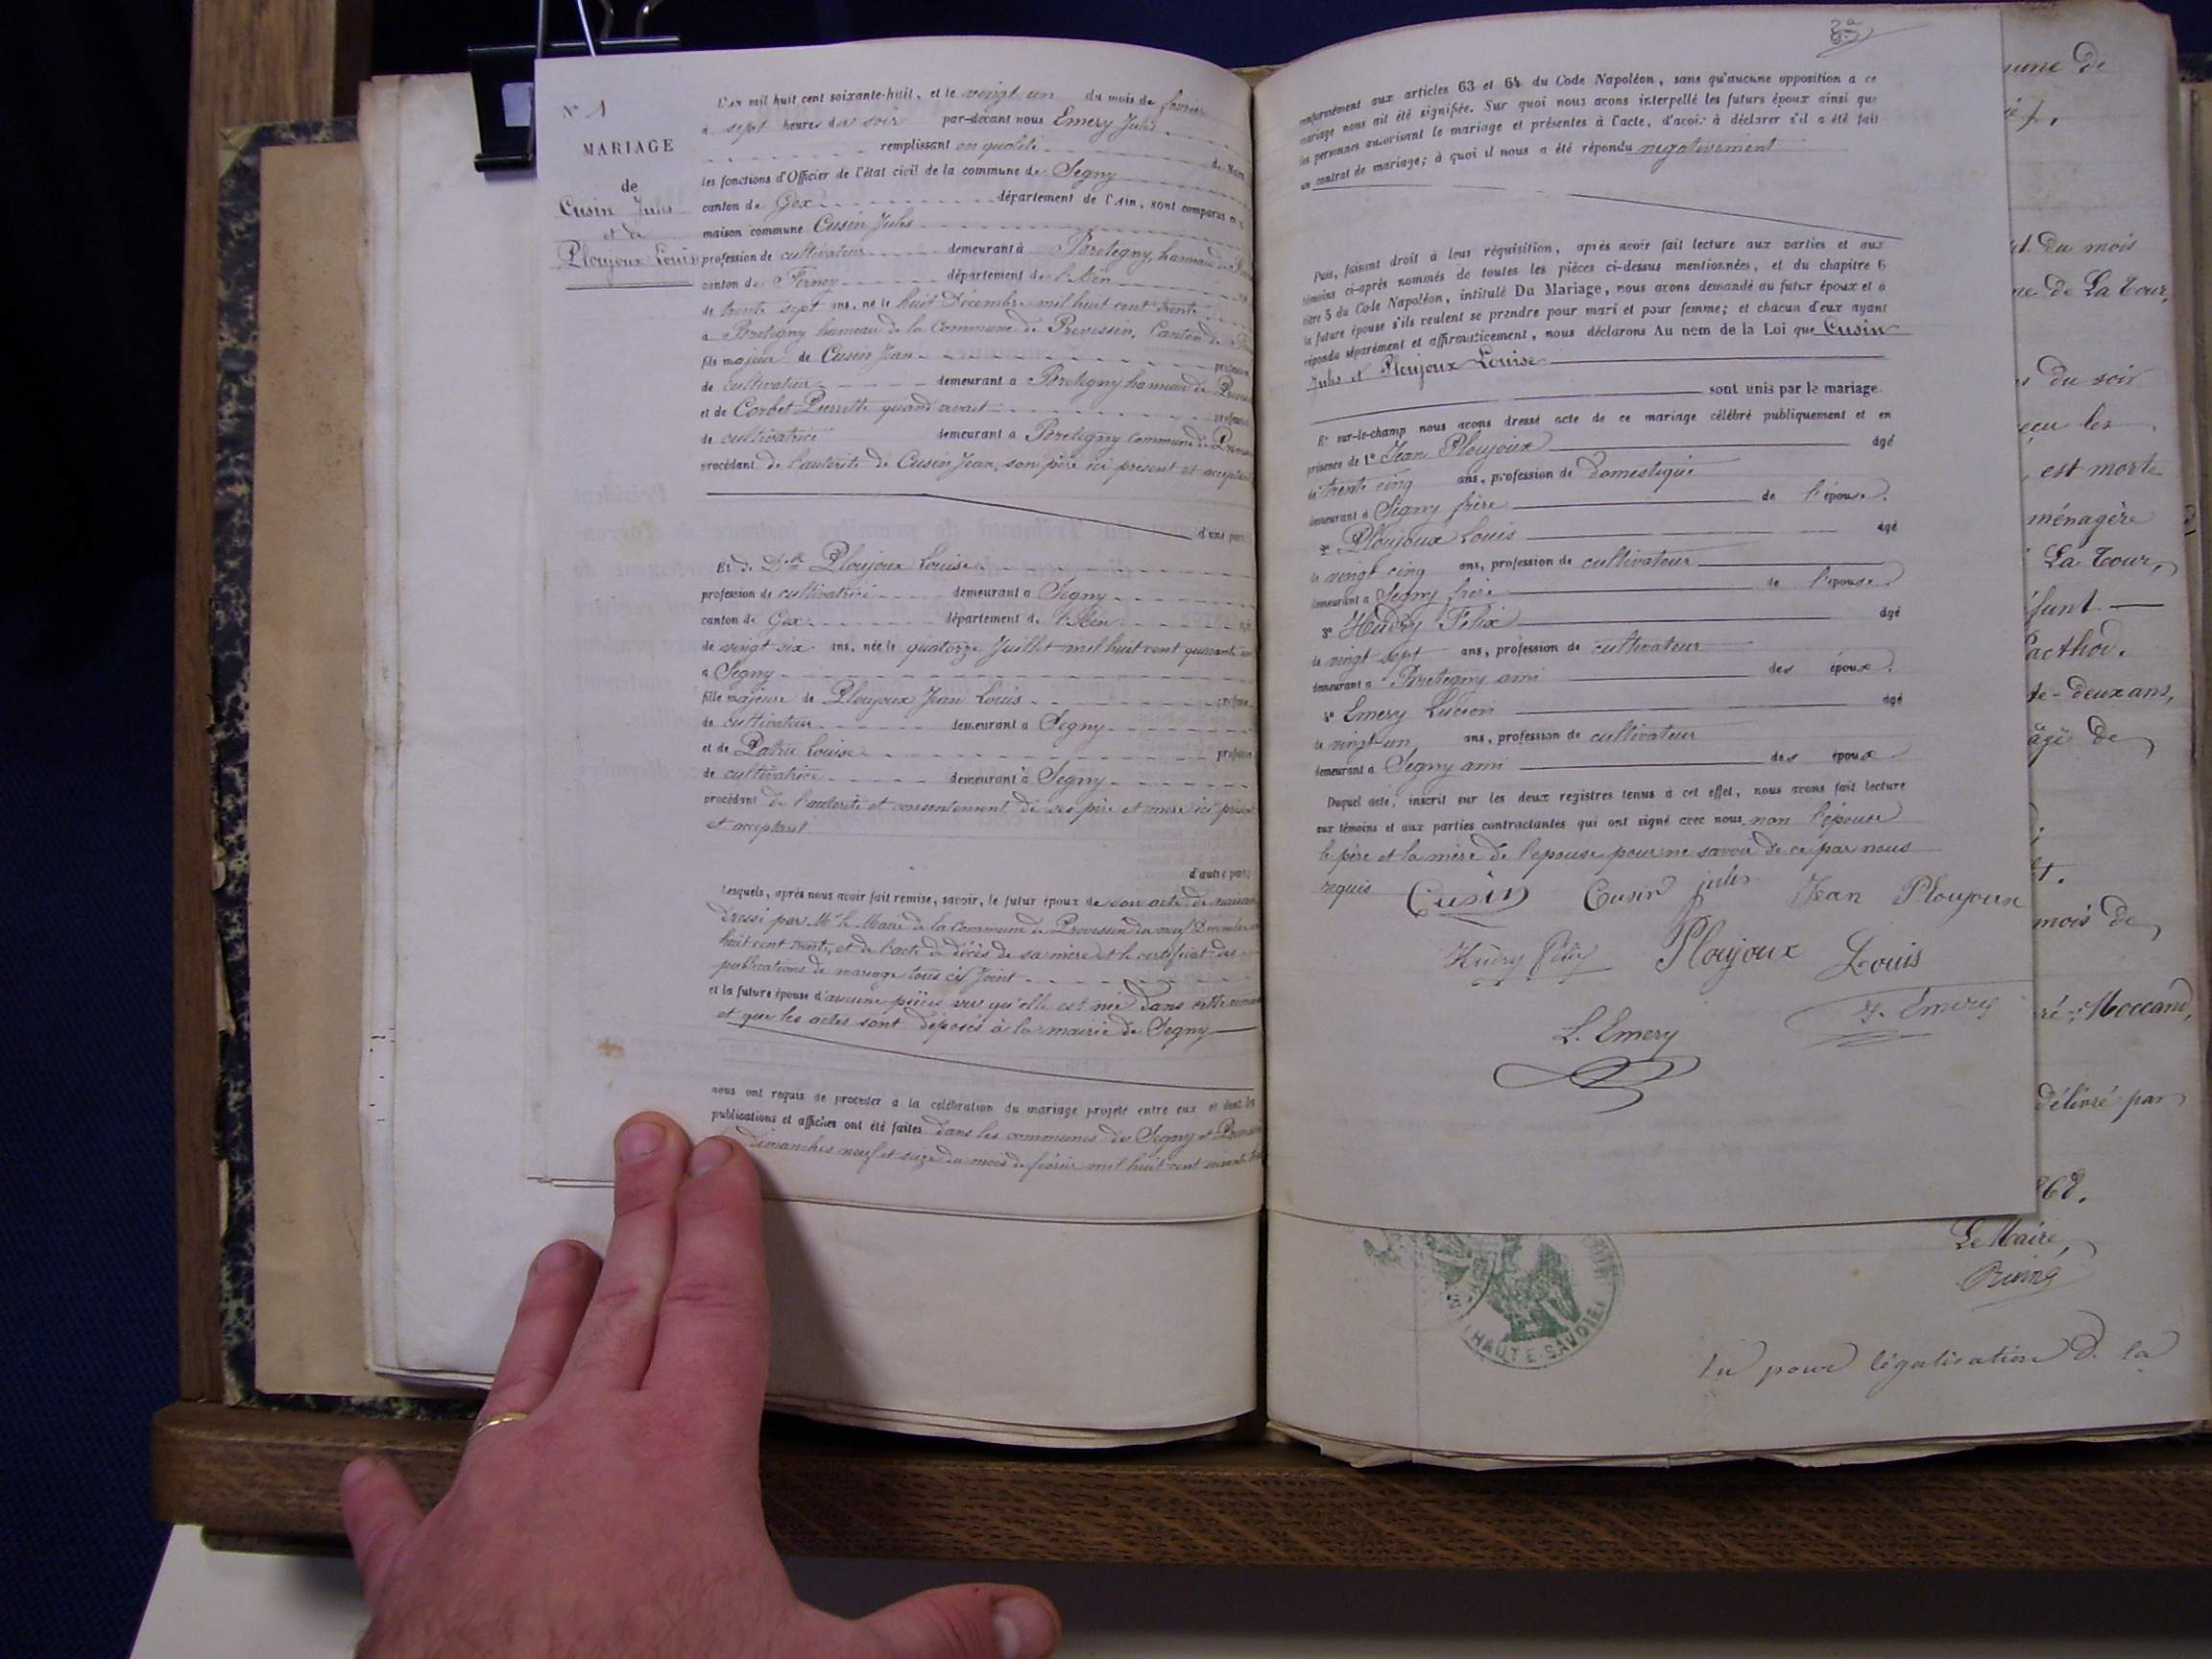 N° 1
MARIAGE
de
Cusin Jules
et de
Ploujoux Louise
L'an mil huit cent soixante-huit, et le vingt un du mois de février
à sept heures du soir par-devant nous Emery Jules
remplissant en qualité de Maire
les fonctions d'Officier de l'état civil de la commune de Segny
canton de Gex département de l'Ain, sont comparus en
maison commune Cusin Jules
profession de cultivateur demeurant à Bretegny, hameau de
canton de Ferney département de l'Ain
de trente sept ans, né le huit Décembre mil huit cent trente
à Bretegny hameau de la Commune de Prevessin, Canton de
fils majeur de Cusin Jean profession
de cultivateur demeurant à Bretegny hameau de
et de Corbet Pierrette quand vivait profession
de cultivatrice demeurant à Bretegny Commune de
procédant de l'autorité de Cusin Jean, son père ici présent et acceptant
d'une part
Et de Dlle Ploujoux Louise
profession de cultivatrice demeurant à Segny
canton de Gex département de l'Ain
de vingt six ans, née le quatorze Juillet mil huit cent quarante un
à Segny
fille majeure de Ploujoux Jean Louis profession
de cultivateur demeurant à Segny
et de Patru Louise profession
de cultivatrice demeurant à Segny
procédant de l'autorité et consentement de ses père et mère ici présent
et acceptant
d'autre part;
Lesquels, après nous avoir fait remise, savoir, le futur époux de son acte de naissance
dressé par Mr le Maire de la Commune de Prevessin du neuf Décembre
huit cent trente, et de l'acte de décès de sa mère et le certificat des
publications de mariage tous ci Joint
et la future épouse d'aucune pièces vu qu'elle est née dans cette commune
et que les actes sont déposés à la mairie de Segny
nous ont requis de procéder à la célébration du mariage projeté entre eux et dont les
publications et affiches ont été faites dans les communes de Segny et
dimanches neuf et seize du mois de février mil huit cent soixante
conformément aux articles 63 et 64 du Code Napoléon, sans qu'aucune opposition à ce
mariage nous ait été signifiée. Sur quoi nous avons interpellé les futurs époux ainsi que
les personnes autorisant le mariage et présentes à l'acte, d'avoir à déclarer s'il a été fait
un contrat de mariage; à quoi il nous a été répondu négativement
Puis, faisant droit à leur réquisition, après avoir fait lecture aux parties et aux
témoins ci-après nommés de toutes les pièces ci-dessus mentionnées, et du chapitre 6
titre 5 du Code Napoléon, intitulé Du Mariage, nous avons demandé au futur époux et à
la future épouse s'ils veulent se prendre pour mari et pour femme; et chacun d'eux ayant
répondu séparément et affirmativement, nous déclarons Au nom de la Loi que Cusin
Jules et Ploujoux Louise
sont unis par le mariage.
Et sur-le-champ nous avons dressé acte de ce mariage célébré publiquement et en
présence de 1° Jean Ploujoux âgé
de trente cinq ans, profession de domestique
demeurant à Segny frère de l'épouse.
2° Ploujoux Louis âgé
de vingt cinq ans, profession de cultivateur
demeurant à Segny frère de l'épouse
3° Hudry Félix âgé
de vingt sept ans, profession de cultivateur
demeurant à Bretegny ami des époux.
4° Emery Lucien âgé
de vingt-un ans, profession de cultivateur
demeurant à Segny ami des époux
Duquel acte, inscrit sur les deux registres tenus à cet effet, nous avons fait lecture
aux témoins et aux parties contractantes qui ont signé avec nous non l'épouse
le père et la mère de l'épouse pour ne savoir de ce par nous
requis
Cusin Cusin jules Jean Ploujoux
Hudry Félix Ploujoux Louis
L. Emery J. Emery
une de
du mois
de La Tour,
du soir
reçu les
, est morte
ménagère
La Tour,
te-deuxans,
âgé de
mois de
Moccand,
délivré par
Le Maire,
HAUTE-SAVOIE
Vu pour légalisation d la